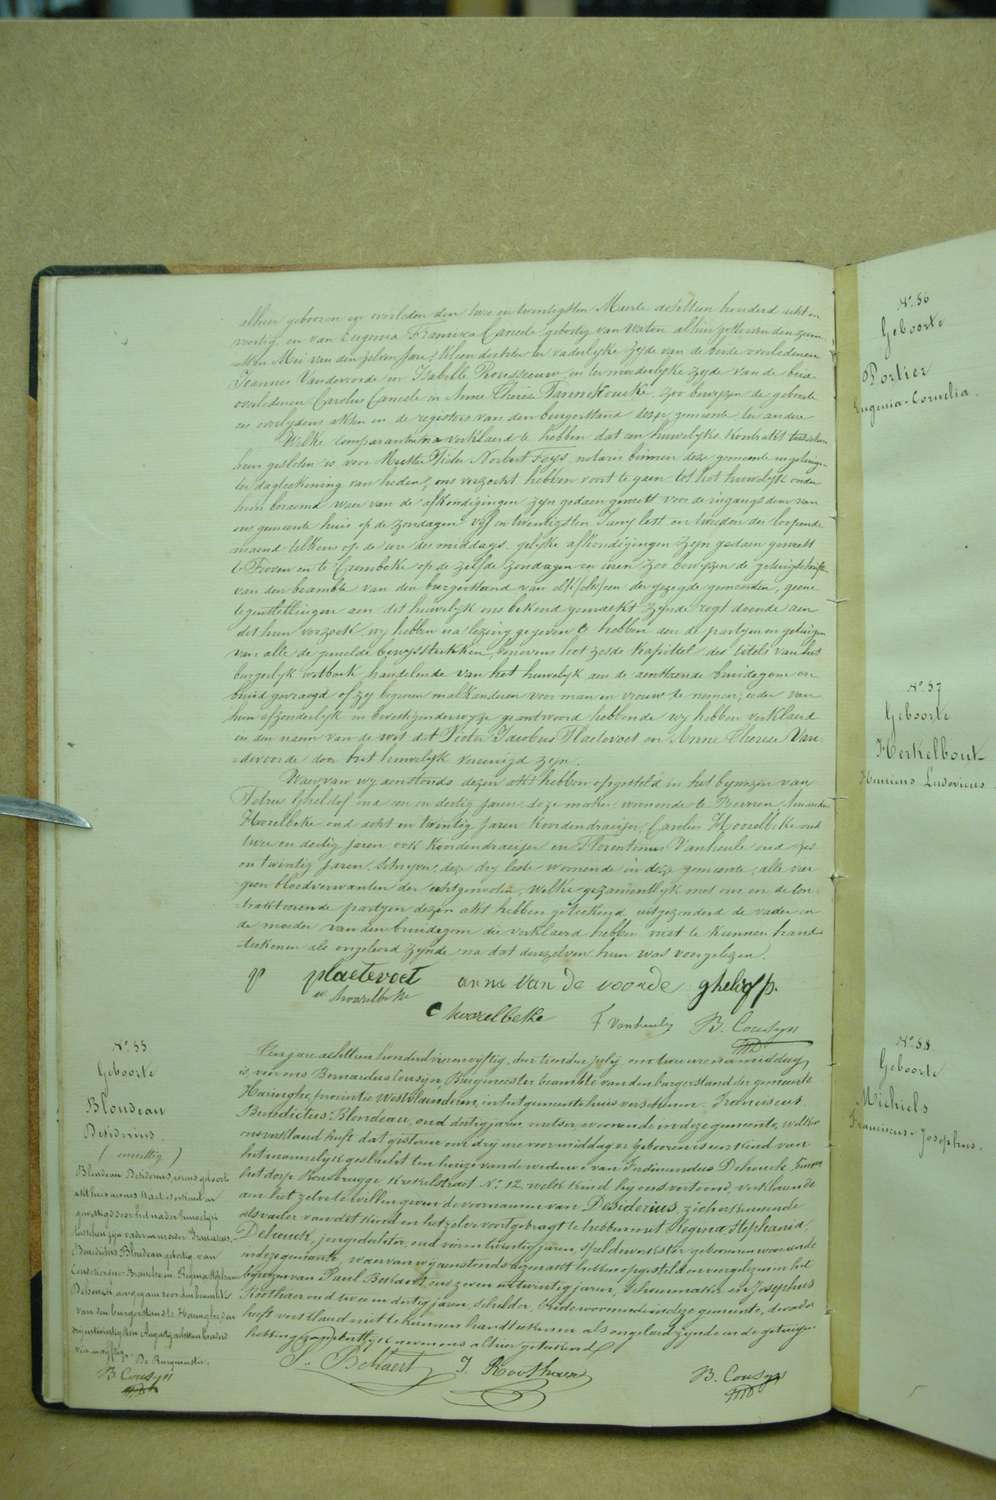 alhier geboren en overleden den twee en twintigsten Maerte achttien honderd acht en
veertig, en van Eugenia Francisca Canele geboortig van Watou alhier overleden den
Mei van den zelven jare; kleindochter in vaderlyke zyde van de beide overledenen
Joannes Vandevoorde en Isabelle Rousseeuw, en ter moederlyke zyde van de beide
overledenen Carolus Canele en Anne Therese Vannehoucke. Zoo bewyzen de geboorte
en overlydens akten en de registers van den burgerstand dezer gemeente ter andere
Welke comparanten na verklaerd te hebben dat een huwelyks kontrakt tusschen
hun gesloten is voor Meester Pieter Norbert Feys, notaris binnen deze gemeente
ter dagteekening van heden, ons verzocht hebben voort te gaen tot het huwelyk onder
hun beraemd waer van de afkondigingen zyn gedaen geweest voor de ingangdeur van
ons gemeente huis op de zondagen vyf en twintigsten Juny lest en tweeden der loopende
maend telkens op de ure des middags. gelyke afkondigingen zyn gedaen geweest
te Proven en te Crombeke op de zelfde zondagen en uren zoo bewyzen de getuigschriften
van den beambte van den burgerstand van elk der gezegde gemeenten, geene
tegenstellingen aen dit huwelyk ons bekend gemaekt zynde regt doende aen
dit hun verzoek, wy hebben na lezing gegeven te hebben aen de partyen en getuigen
van alle de gemelde bewysstukken, benevens het zesde kapittel des titels van het
burgerlyk wetboek handelende van het huwelyk aen de aenstaende bruidegom en
bruid gevraegd of zy begeeren malkanderen voor man en vrouw te nemen; ieder van
hun afzonderlyk en bevestigenderwyze geantwoord hebbende wy hebben verklaerd
in den naem van de wet dat Pieter Jacobus Plaetevoet en Anne Therese Van-
devoorde door het huwelyk vereenigd zyn.
Waervan wy aenstonds dezen akt hebben opgesteld in het bywezen van
Petrus Gheldof en dertig jaren wonende te
Hoorelbeke oud acht en twintig jaren koordendraeijer, Carolus Hoorelbeke oud
twee en dertig jaren ook koordendraeijer en Florentinus Vanheule oud zes
en twintig jaren, schryver, deze dry leste wonende in deze gemeente, alle van
geen bloedverwanten der echtgenooten, welke gezamentlyk met ons en de con-
trakterende partyen dezen akt hebben geteekend, uitgezonderd de vader en
de moeder van den bruidegom die verklaerd hebben niet te kunnen hand-
teekenen als ongeleerd zynde na dat dezelven hun was voorgelezen.
p plaetevoet anna van de voorde ghelof p.
a hoorelbeke
C hoorelbeke F Vanheule B. Cousyn
N°. 55
Geboorte
Blondeau
Desiderius.
( onwettig )
Blondeau Desiderius, wiens geboorte
akt hier nevens staet is erkend en
gewettigd door het nader huwelyk
tusschen zyn vader en moeder Franciscus
Benedictus Blondeau geboortig van
en Regina Stephania
Dehouck, aengegaen voor den beambte
van den burgerstand te Haringhe den
twintigsten Augusty achttien honderd
vier en vyftig. De Burgmeester.
B Cousyn
Ten jare achttien honderd vier en vyftig, den tienden july, om twee uren namiddag,
is, voor ons Bernardus Cousyn, Burgmeester beambte van den burgerstand der gemeente
Haringhe, provintie Westvlaenderen, in het gemeentehuis verschenen Franciscus
Benedictus Blondeau, oud dertig jaren, metser, wonende in deze gemeente, welke
ons verklaerd heeft dat gisteren om dry uren voormiddag er geboren is een kind van
het mannelyk geslacht ten huize van de weduwe van Ferdinandus Dehouck binnen
het dorp Rousbrugge Kerkstraet N°. 12. welk kind hy ons vertoond, verklaerende
aen het zelve te willen geven de voornamen van Desiderius, zich erkennende
als vader van dit kind en het zelve voortgebragt te hebben met Regina Stephania
Dehouck, jonge dochter, oud vier en twintig jaren, speldewerkster geboren en wonende
in deze gemeente, waervan wy aenstonds dezen akt hebben opgesteld en voorgelezen in het
bywezen van Paul Behaert, oud zeven en twintig jaren, schoenmaker en Josephus
Roothaer oud twee en dertig jaren, schilder, beide wonende in deze gemeente, de vader
heeft verklaerd niet te kunnen handteekenen als ongeleerd zynde en de getuigen
hebben gezamentlyk nevens ons alhier geteekend.
P. Behaert J. Roothaer B. Cousyn
N°. 56
Geboorte
Portier
Eugenia-Cornelia.
N°. 57
Geboorte
Herkelbout
Henricus Ludovicus
N°. 58.
Geboorte
Michiels
Franciscus-Josephus.